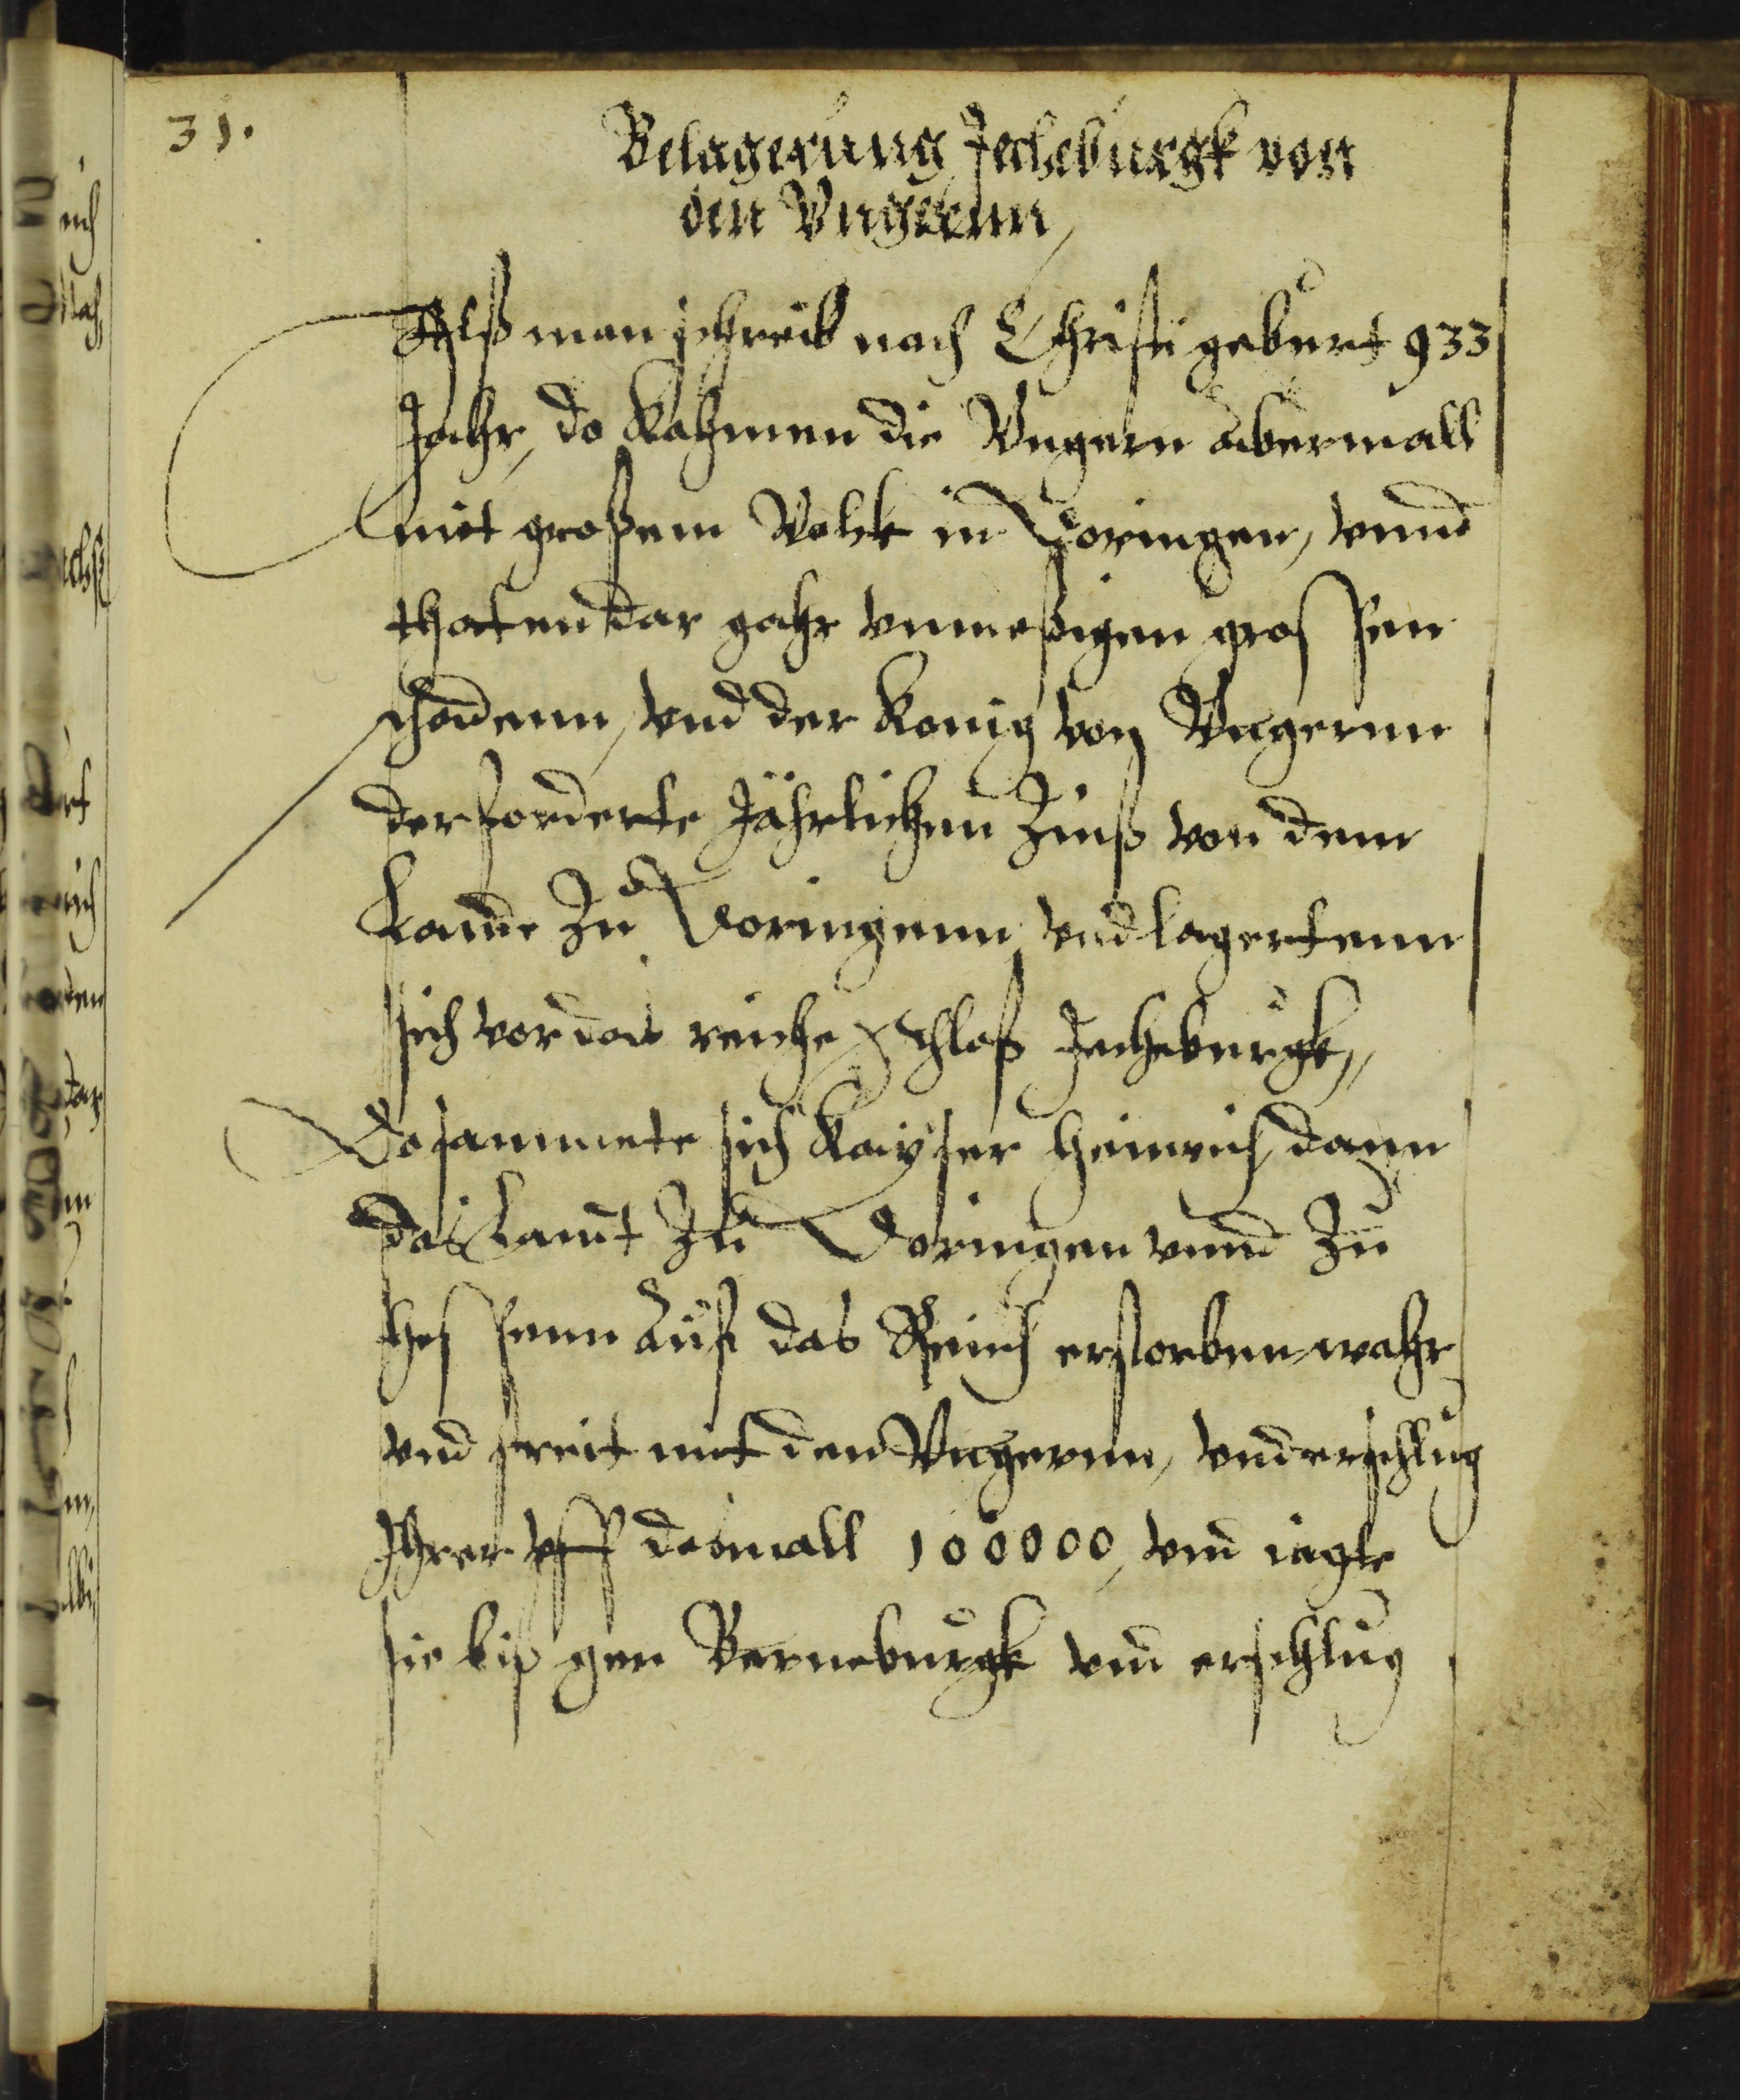 31.
Belagerung Jecheburgk von
den Vngernn
Alß man schreib nach Christi geburt 933
Jahr, do Kahmen die Vngern abermall
mit großem Volck in Doringen, vnnd
thaten dar gahr vnmeßigen grossen
schadenn, vnd der Konig von Vngernn
der forderte Jährlichen Zinß von dem
Lande Zu Doringenn, vnd lagertenn
sich vor das reiche Schloß Jecheburgk,
Do sammete sich Kayser Heinrich, dann
das Lannt Zu Doringen vnnd Zu
Hessenn auf das Reich erstorben wahr
vnd streit mit den Vngernn, vnd erschlug
Ihrer vff dasmall 100000, vnd iagte
sie biß gen Berneburgk vnd erschlug